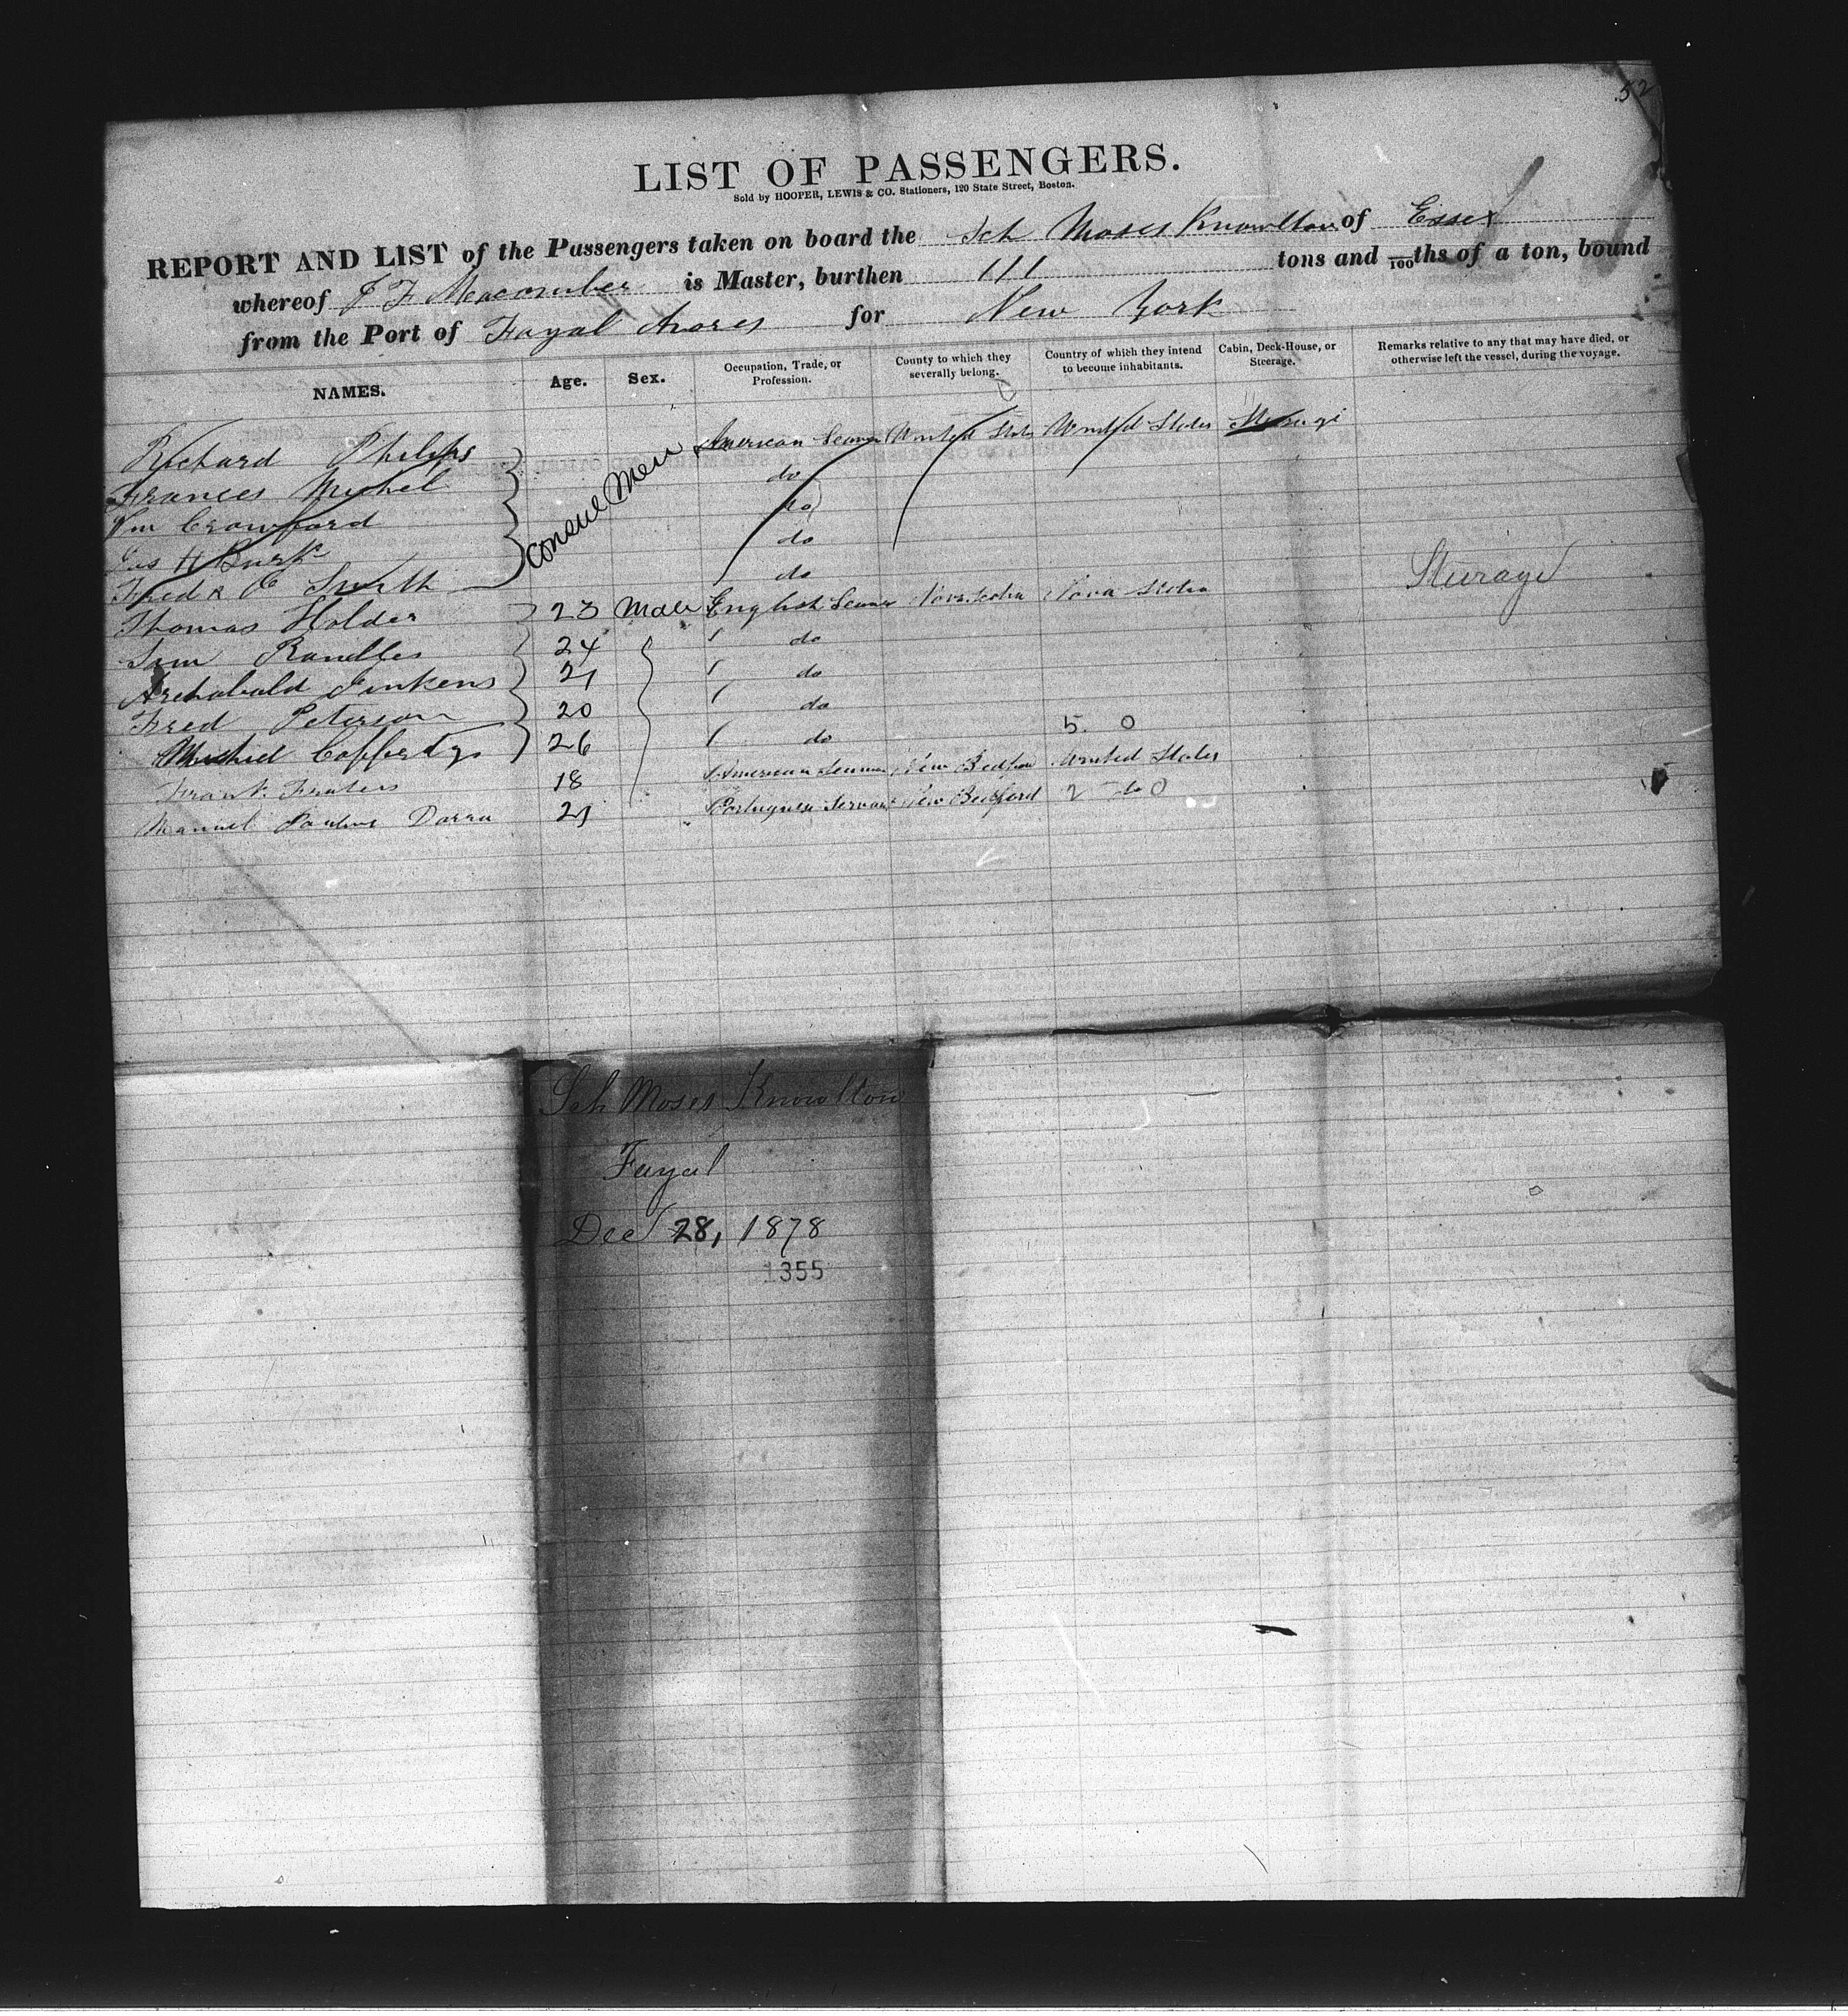 52
LIST OF PASSENGERS.
Sold by HOOPER, LEWIS & CO. Stationers, 120 State Street, Boston.
REPORT AND LIST of the Passengers taken on board the Sch Moses Knowlton of Essex
whereof J F Macomber is Master, burthen 111 tons and /100ths of a ton, bound
from the Port of Fayal Azores for New York
NAMES. Age. Sex. Occupation, Trade, or Profession. County to which they severally belong. Country of which they intend to become inhabitants. Cabin, Deck-House, or Steerage. Remarks relative to any that may have died, or otherwise left the vessel, during the voyage.
Richard Philips American Seaman United States United States Steerage
Frances Michel do
Wm Crawford do
Jas H Burk do
Fred k C Smith do
Consul Men
Thomas Holder 23 Male English Seaman Nova Scotia Nova Scotia Steerage
Sam Randles 24 do
Archabald Jinkens 21 do
Fred Peterson 20 do
Michael Cofferty 26 do 5 0
Frank 18 American Seaman New Bedford United States
Manuel 21 Portuguese Servant New Bedford 2 do 0
Sch Moses Knowlton
Fayal
Dec 28, 1878
1355